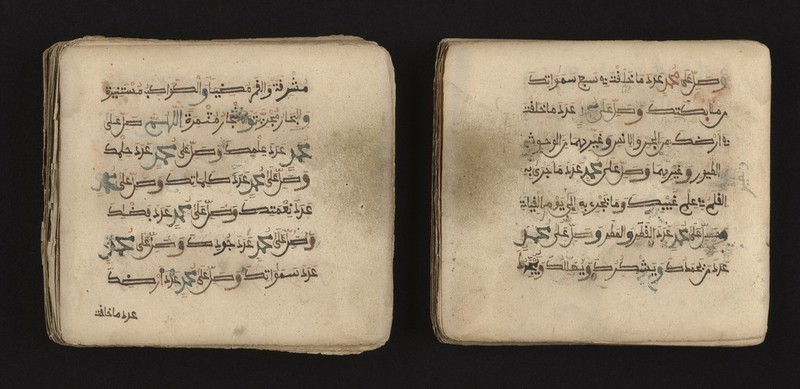 مشرقة والقمر مضيا والكواكب مستنيرة
والبحار مجرية والاشجار مثمرة اللهم صل على
محمد عدد علمك وصل على محمد عدد حلمك
وصل على محمد عدد كلماتك وصل على محمد
عدد نعمتك وصل على محمد عدد فضلك
وصل على محمد عدد جودك وصل على محمد
عدد سمواتك وصل على محمد عدد أرضك
عدد ما خلقت
وصل على محمد عدد ما خلقت في سبع سمواتك
من ملائكتك وصل على عدد ما خلقت
في أرضك من الجن والانس وغيرهما من الوحوش و
الطيور وغيرهما وصل على محمد عدد ما جرى به
القلم في علم غيبك وما يجري به إلى يوم القيامة
وصل على محمد عدد القطر والمطر وصل على محمد
عدد من يحمدك ويشكرك ويهللك